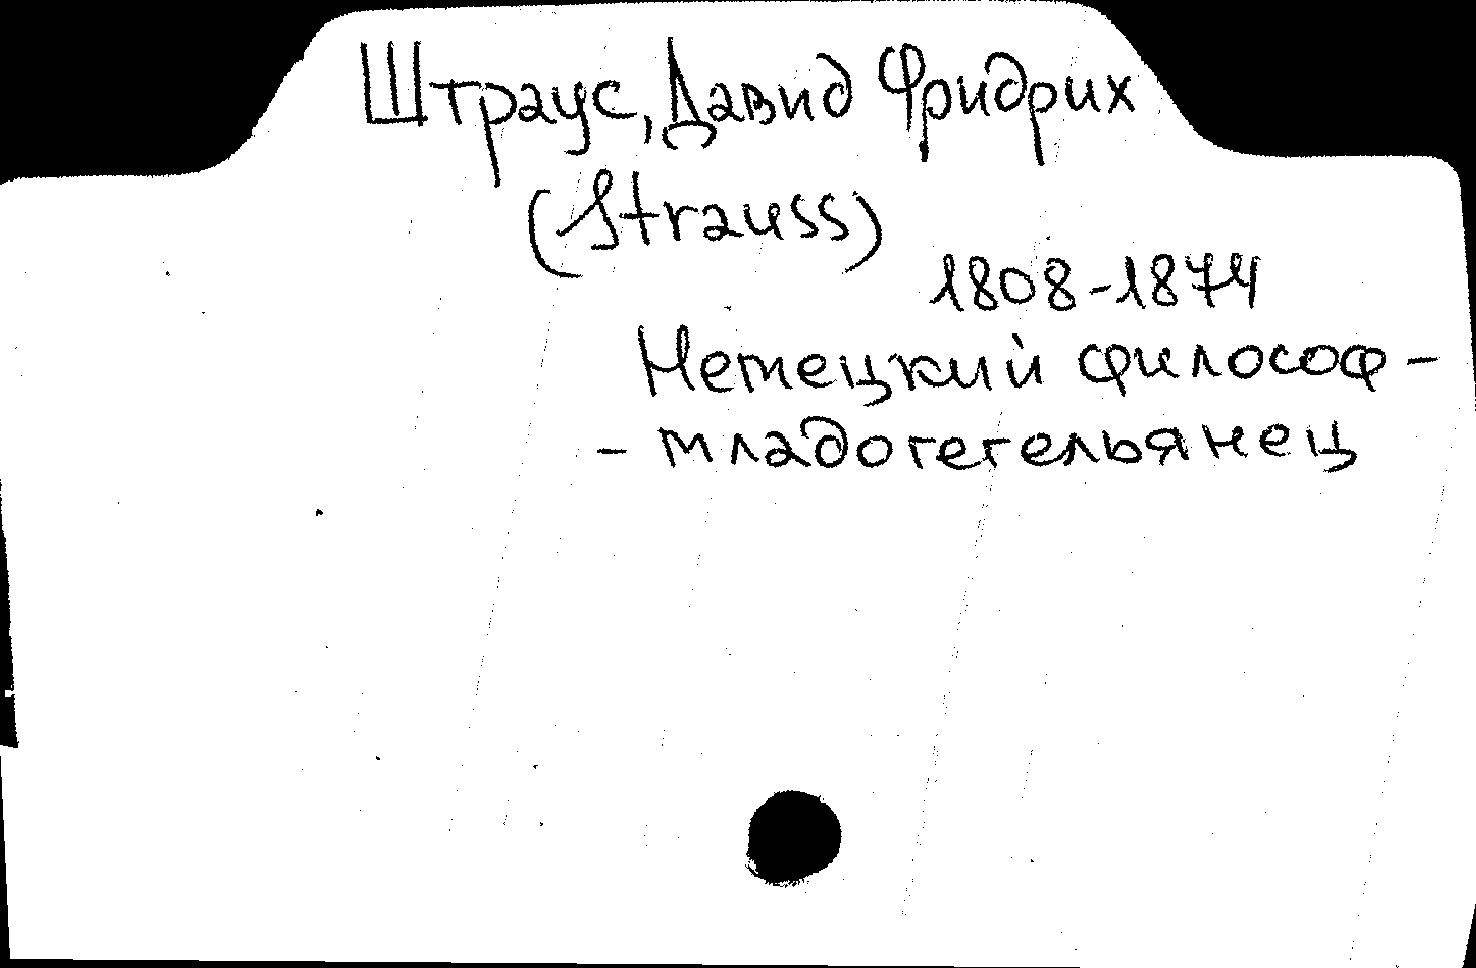 Штраус, Давид Фридрих
(Strauss)
1808-1874
Немецкий философ -
- младогегельянец